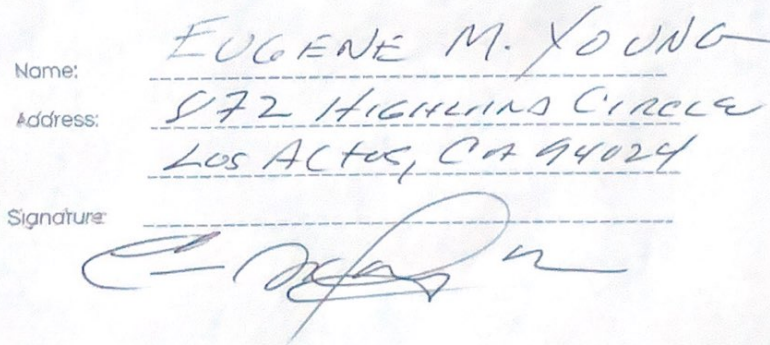 Name: EUGENE M. YOUNG
Address: 872 HIGHLAND CIRCLE
LOS ALTOS, CA 94024
Signature: